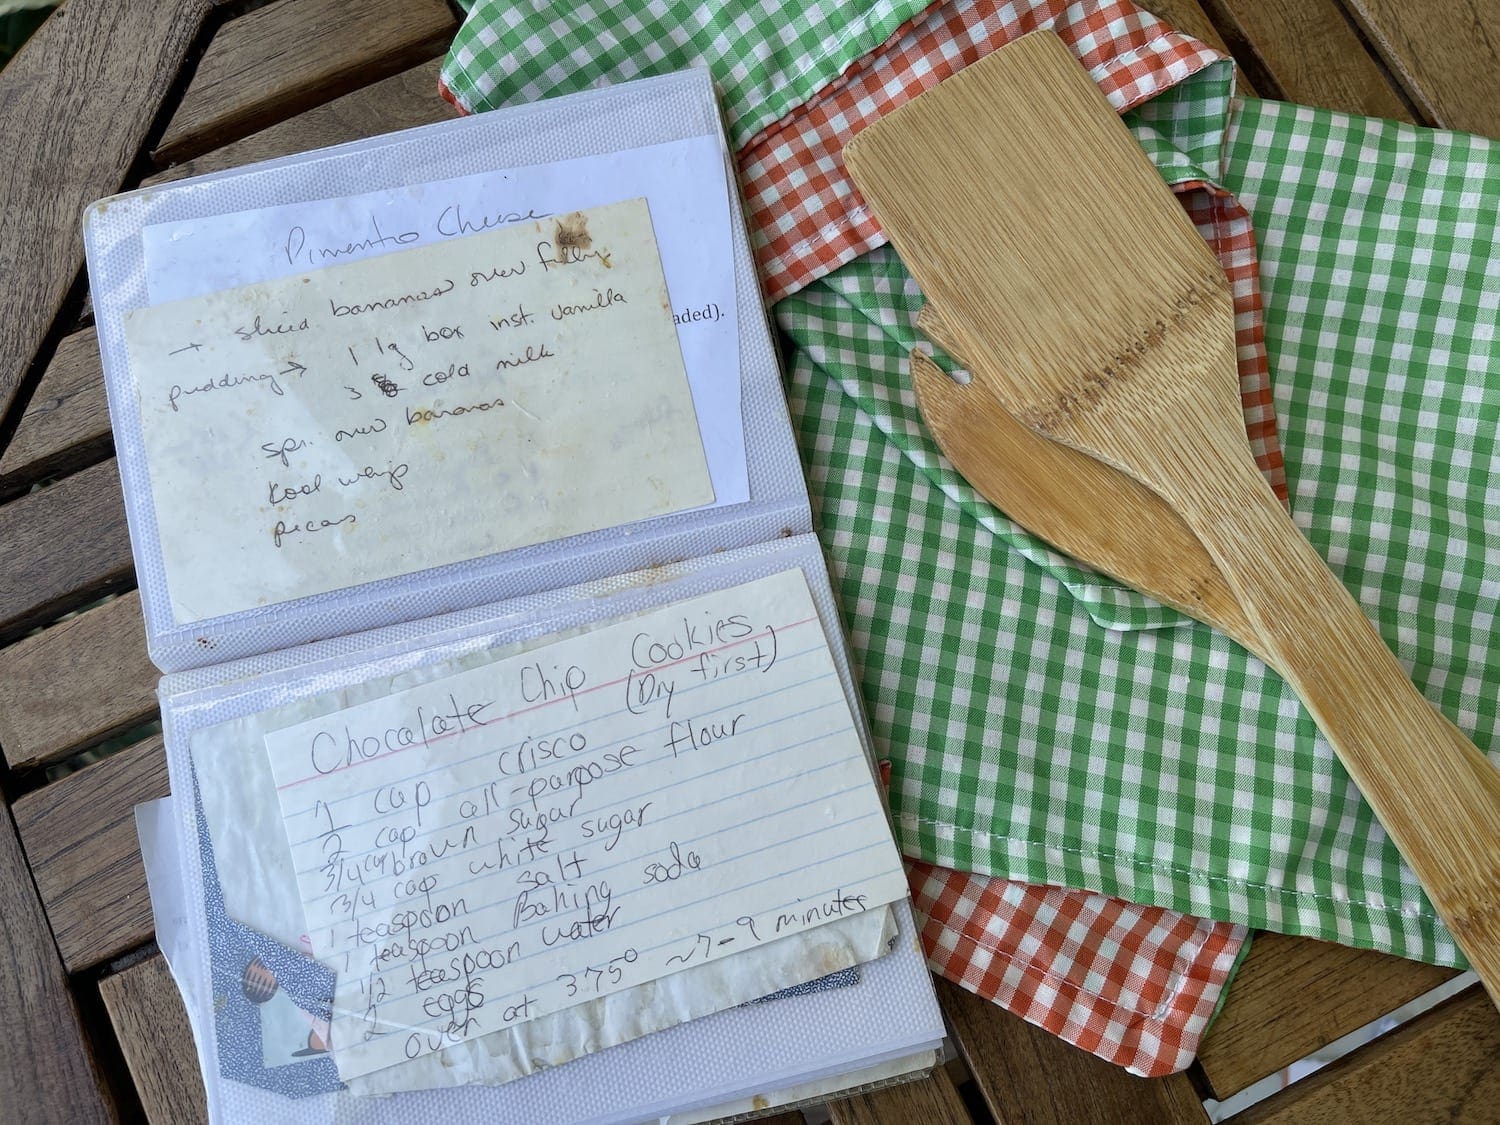 Pimento Cheese
aded).
→ sliced bananas over filling
pudding → 1 lg box inst. vanilla
3 cold milk
spr. over bananas
Kool whip
pecans
Chocolate Chip Cookies
(Dry first)
1 cup crisco
2 cup all-purpose flour
3/4 cup brown sugar
3/4 cup white sugar
1 teaspoon salt
1 teaspoon Baking soda
1/2 teaspoon water
2 eggs
oven at 375° ~7-9 minutes